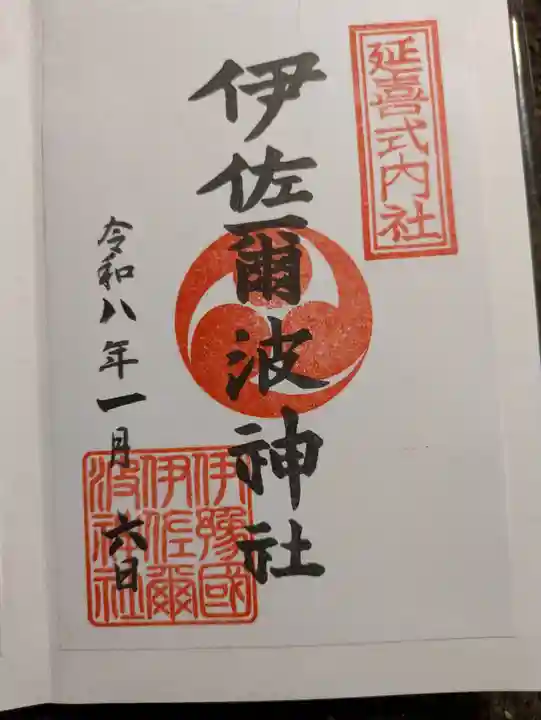 延喜式内社
伊佐爾波神社
伊豫國
伊佐爾
波神社
令和八年一月六日